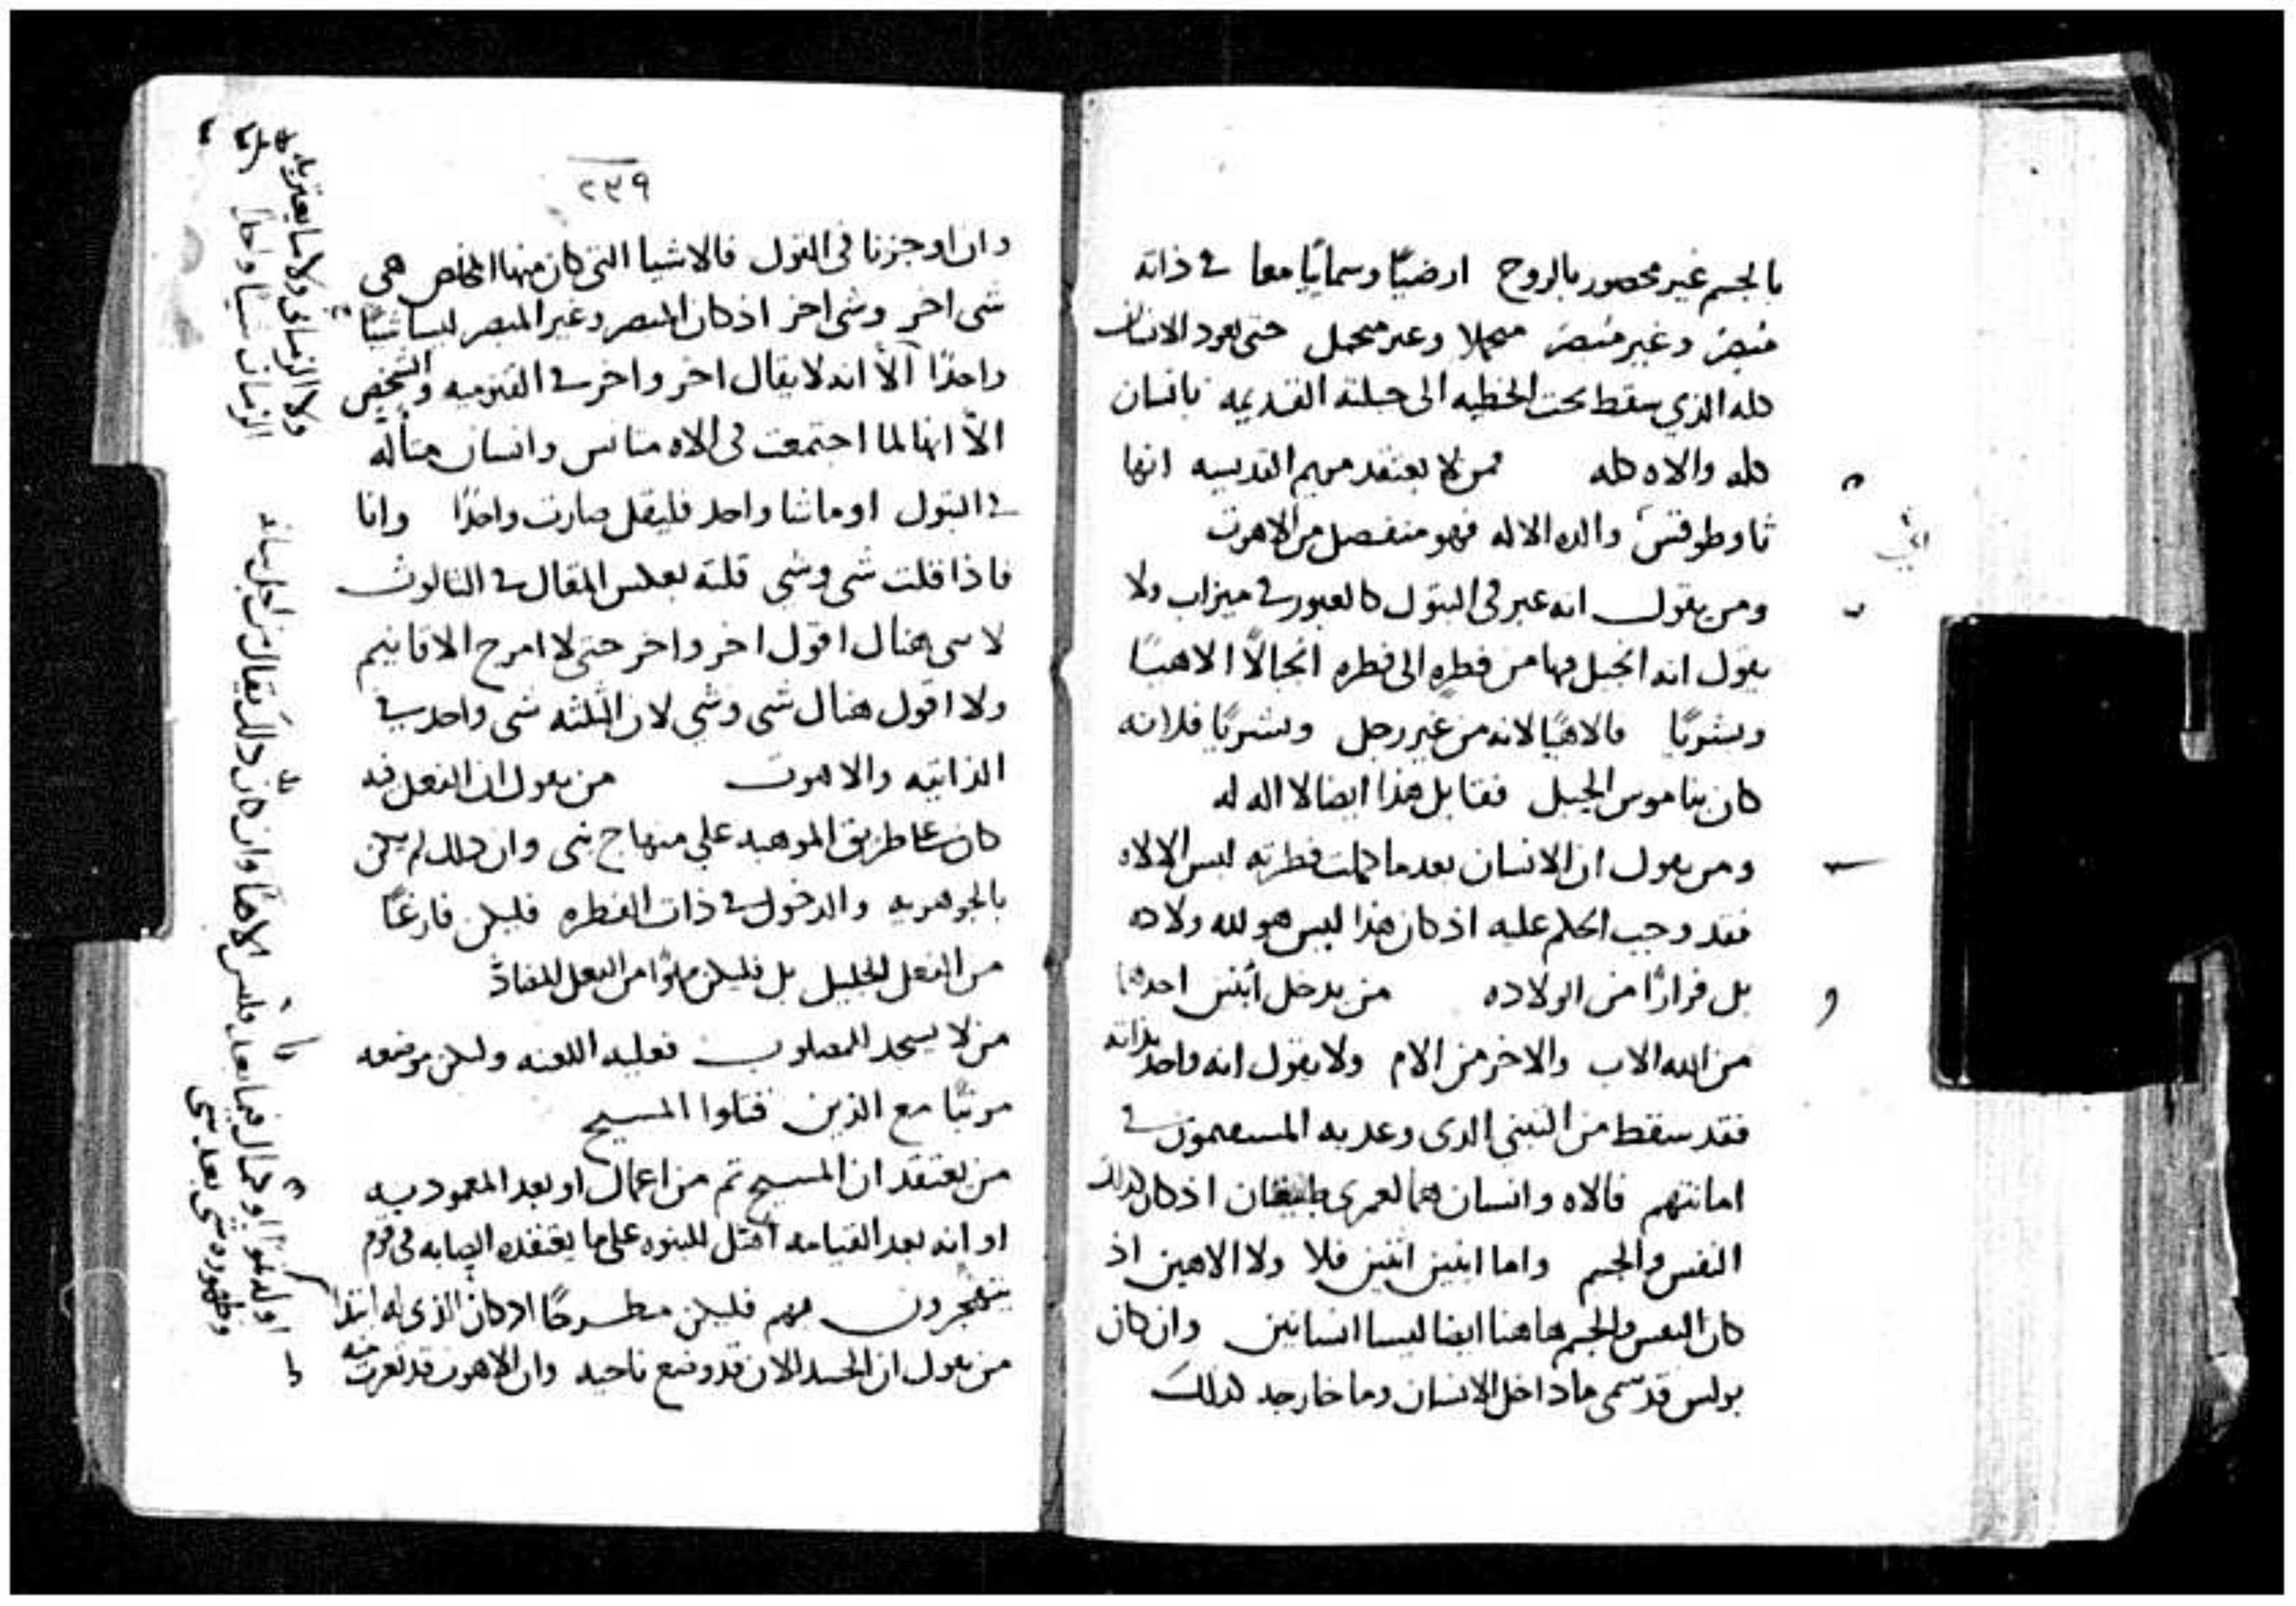 بالجسم غير محصور بالروح ارضيًا وسمايًا معا في ذاته
مبصرً وغير مبصرً متحملا وغير متحمل حتى يعود الانسان
كله الذي سقط تحت الخطيه الى جبلته القديمه بانسان
كله والاه كله فمن لا يعتقد مريم القديسه انها
ثاوطوقس والده الاله فهو منفصل من الاهوت
ومن يقول انه عبر في البتول كالعبور في ميزاب ولا
يقول انه انجبل فيها من فطره الى فطره انجبالًا الاهيًا
وبشريًا فالاهيًا لانه من غير رجل وبشريًا فلانه
كان بناموس الحبل فقابل هذا ايضا لا اله له
ومن يقول ان الانسان بعدما كملت فطرته لبس الالاه
فقد وجب الحكم عليه اذ كان هذا ليس هو لله ولاده
بل فرارًا من الولاده من يدخل ابنين احدهما
من الله الاب والاخر من الام ولا يقول انه واحد بذاته
فقد سقط من التبني الذى وعد به المستقيمون في
امانتهم فالاه وانسان هما لعمرى طبيعتان اذ كان كذلك
النفس والجسم واما ابنين اثنين فلا ولا الاهين اذ
كان النفس والجسم هاهنا ايضا ليسا انسانين وان كان
بولس قد سمى ما داخل الانسان وما خارجه كذلك
٢٣٩
وان اوجزنا في القول فالاشيا التي كان منها المخلص هي
شي اخر وشي اخر اذ كان المبصر وغير المبصر ليسا شيًا
واحدًا الّا انه لا يقال اخر واخر في القنوميه والشخص
الّا انها لما اجتمعت في الاه متانس وانسان متأله
في البتول او ماشا واحد فليقل صارت واحدًا وانا
فاذا قلت شي وشي قلته بعكس المقال في الثالوث
لاننى هناك اقول اخر واخر حتى لا امزج الاقانيم
ولا اقول هناك شي وشي لان الثلثه شي واحد في
الذاتيه والاهوت من يقول ان الفعل فيه
كان على طريق الموهبه علي منهاج نبى وان ذلك لم يكن
بالجوهريه والدخول في ذات الفطره فليكن فارغًا
من الفعل الجليل بل فليكن مملوًا من الفعل المضادّ
من لا يسجد للمصلوب فعليه اللعنه وليكن موضعه
مرتبًا مع الذين قتلوا المسيح
من يعتقد ان المسيح تم من اعمال او بعد المعموديه
او انه بعد القيامه اهل للبنوه على ما يعتقده الصابه في قوم
فليكن مطروحًا اذ كان الذى له ابتدا
من يقول ان الجسد الان قد وضع ناحيه وان الاهوت قد تعرت منه
او له نموًا او كمال فيما بعد فليس الاهًا وان كان ذلك يقال من اجل بيانه
وظهوره شي بعد شي